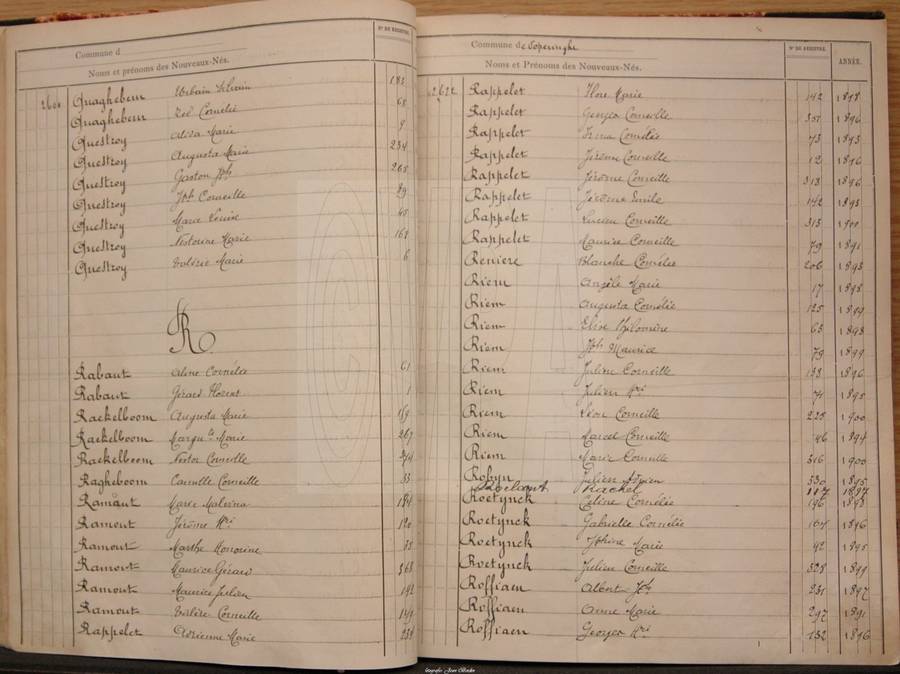 Commune d
N° DE REGISTRE.
Noms et prénoms des Nouveaux-Nés.
2604 Quaghebeur Urbain Silvain 183
Quaghebeur Zoé Cornélie 68
Questroy Alida Marie 9
Questroy Augusta Marie 234
Questroy Gaston Jph 265
Questroy Jph Corneille 29
Questroy Marie Louise 40
Questroy Nestorine Marie 162
Questroy Valérie Marie 6
R
Rabaut Aline Cornélie 61
Rabaut Gérard Florent 1
Raekelboom Augusta Marie 159
Raekelboom Margte Marie 267
Raekelboom Nestor Corneille 274
Ragheboom Camille Corneille 33
Ramaut Marie Malvina 184
Ramout Jérôme Hri 120
Ramout Marthe Honorine 35
Ramout Maurice Gérard 368
Ramout Maurice Julien 192
Ramout Valère Corneille 149
Rappelet Adrienne Marie 238
Commune de Poperinghe
Noms et Prénoms des Nouveaux-Nés.
N° DE REGISTRE.
ANNÉE.
2622 Rappelet Flore Marie 142 1898
Rappelet Georges Corneille 301 1896
Rappelet Irma Cornélie 73 1893
Rappelet Jérôme Corneille 12 1896
Rappelet Jérôme Corneille 313 1896
Rappelet Jérôme Emile 142 1893
Rappelet Lucien Corneille 313 1900
Rappelet Maurice Corneille 79 1891
Reniere Blanche Cornélie 206 1893
Riem Angèle Marie 17 1898
Riem Augusta Cornélie 125 1899
Riem Elise Philomène 63 1893
Riem Jph Maurice 79 1899
Riem Julien Corneille 133 1896
Riem Julien Hri 71 1895
Riem Léon Corneille 223 1900
Riem Marcel Corneille 46 1894
Riem Marie Corneille 316 1900
Robyn Julien 330 1895
Roelandt Rachel 117 1897
Roetynck Céline Cornélie 196 1893
Roetynck Gabrielle Cornélie 164 1896
Roetynck Jphine Marie 92 1895
Roetynck Julien Corneille 328 1899
Roffiaen Albert Jph 231 1897
Roffiaen Anne Marie 297 1891
Roffiaen Georges Hri 132 1896